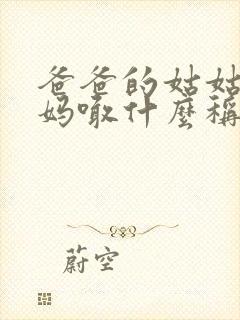 爸爸的姑姑
妈噉什麼稱
蔚空